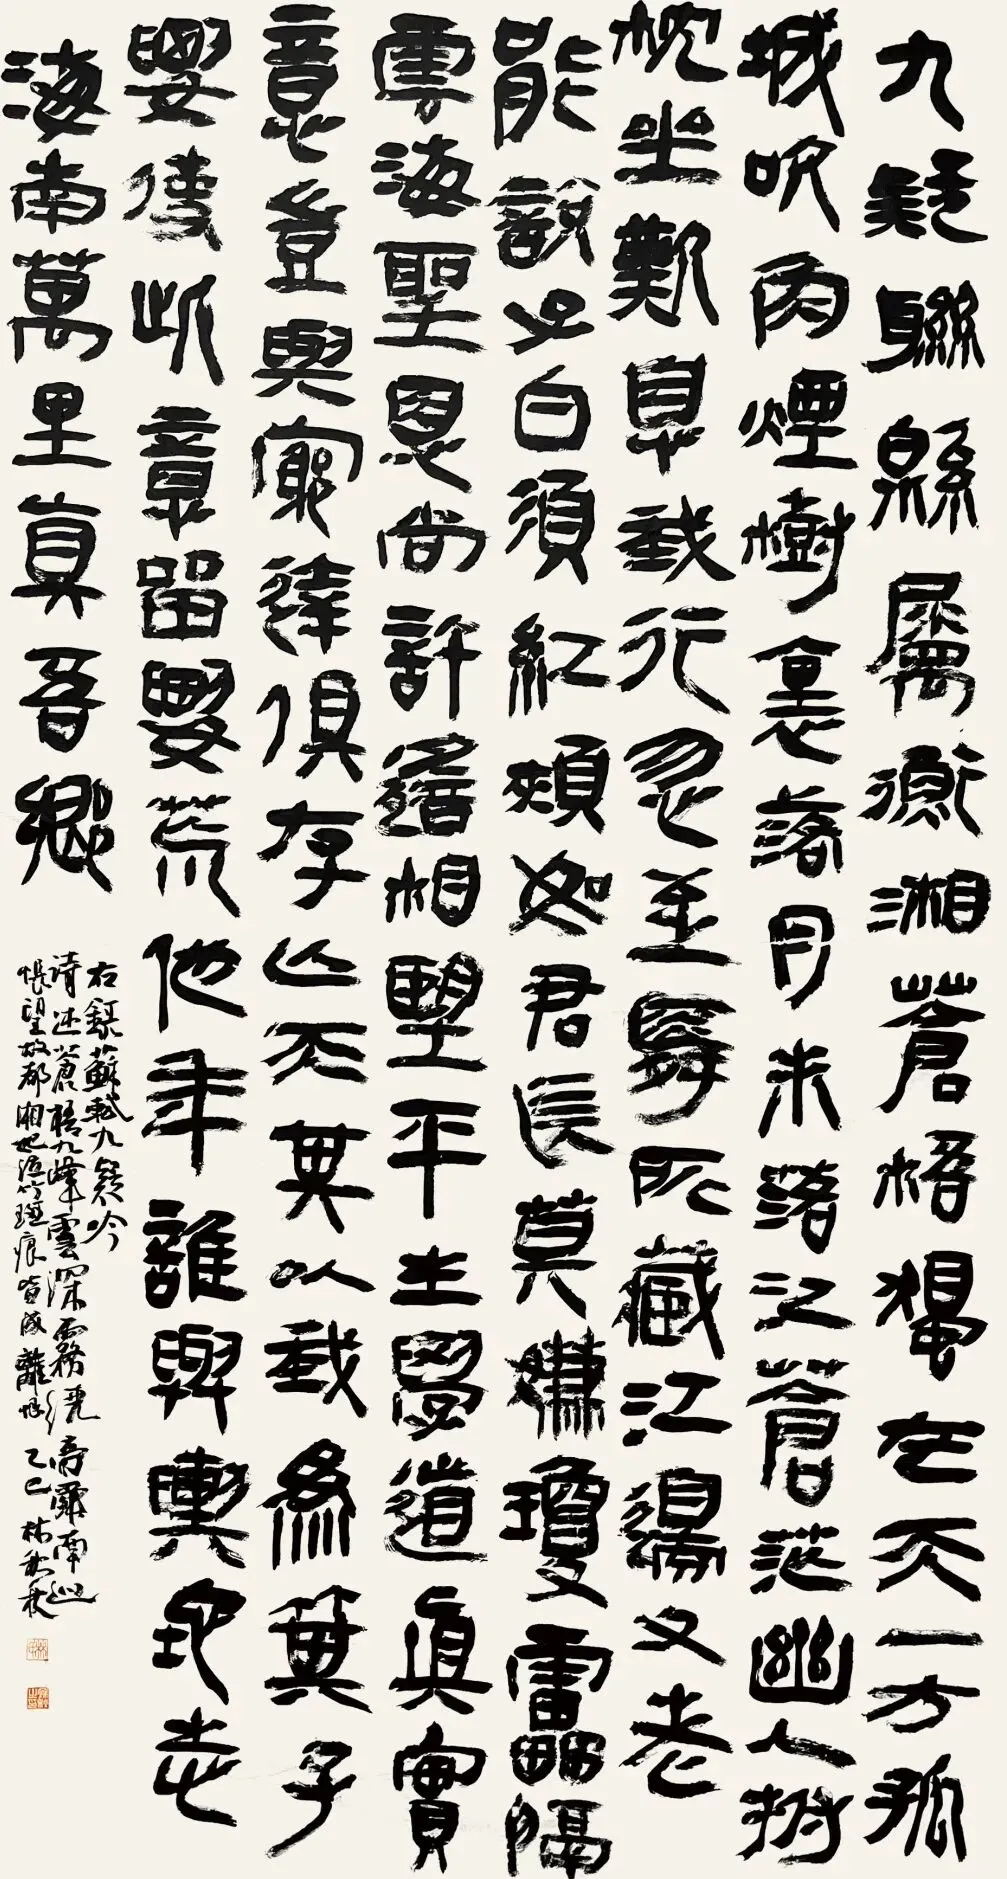 九疑聯緜屬衡湘蒼梧獨在天一方孤
城吹角煙樹裏落月未落江蒼茫幽人拊
枕坐歎息我行忽至舜所藏江邊父老
能說子白須紅頰如君長莫嫌瓊雷隔
雲海聖恩尚許遙相望平生學道真實
意豈與窮達俱存亡天其以我為箕子
要使此意留要荒他年誰與輿地志
海南萬里真吾鄉
右錄蘇軾九疑吟
請述蒼梧九峰雲深霧繞帝舜南巡
悵望故都湘妃泣竹斑痕皆成離恨 乙巳